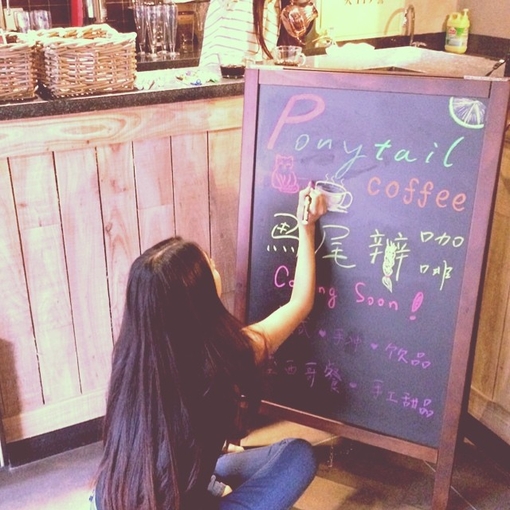 Ponytail
coffee
馬尾辮 咖啡
Coming Soon!
手冲 饮品
西哥餐 手工甜品